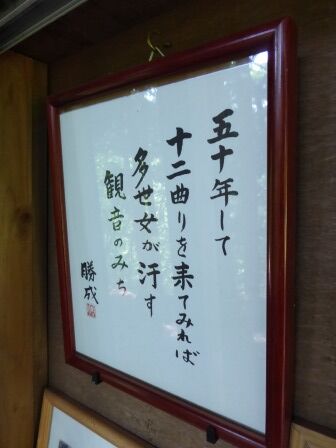 五十年して
十二曲りを来てみれば
多世女が汗す
観音のみち
勝成